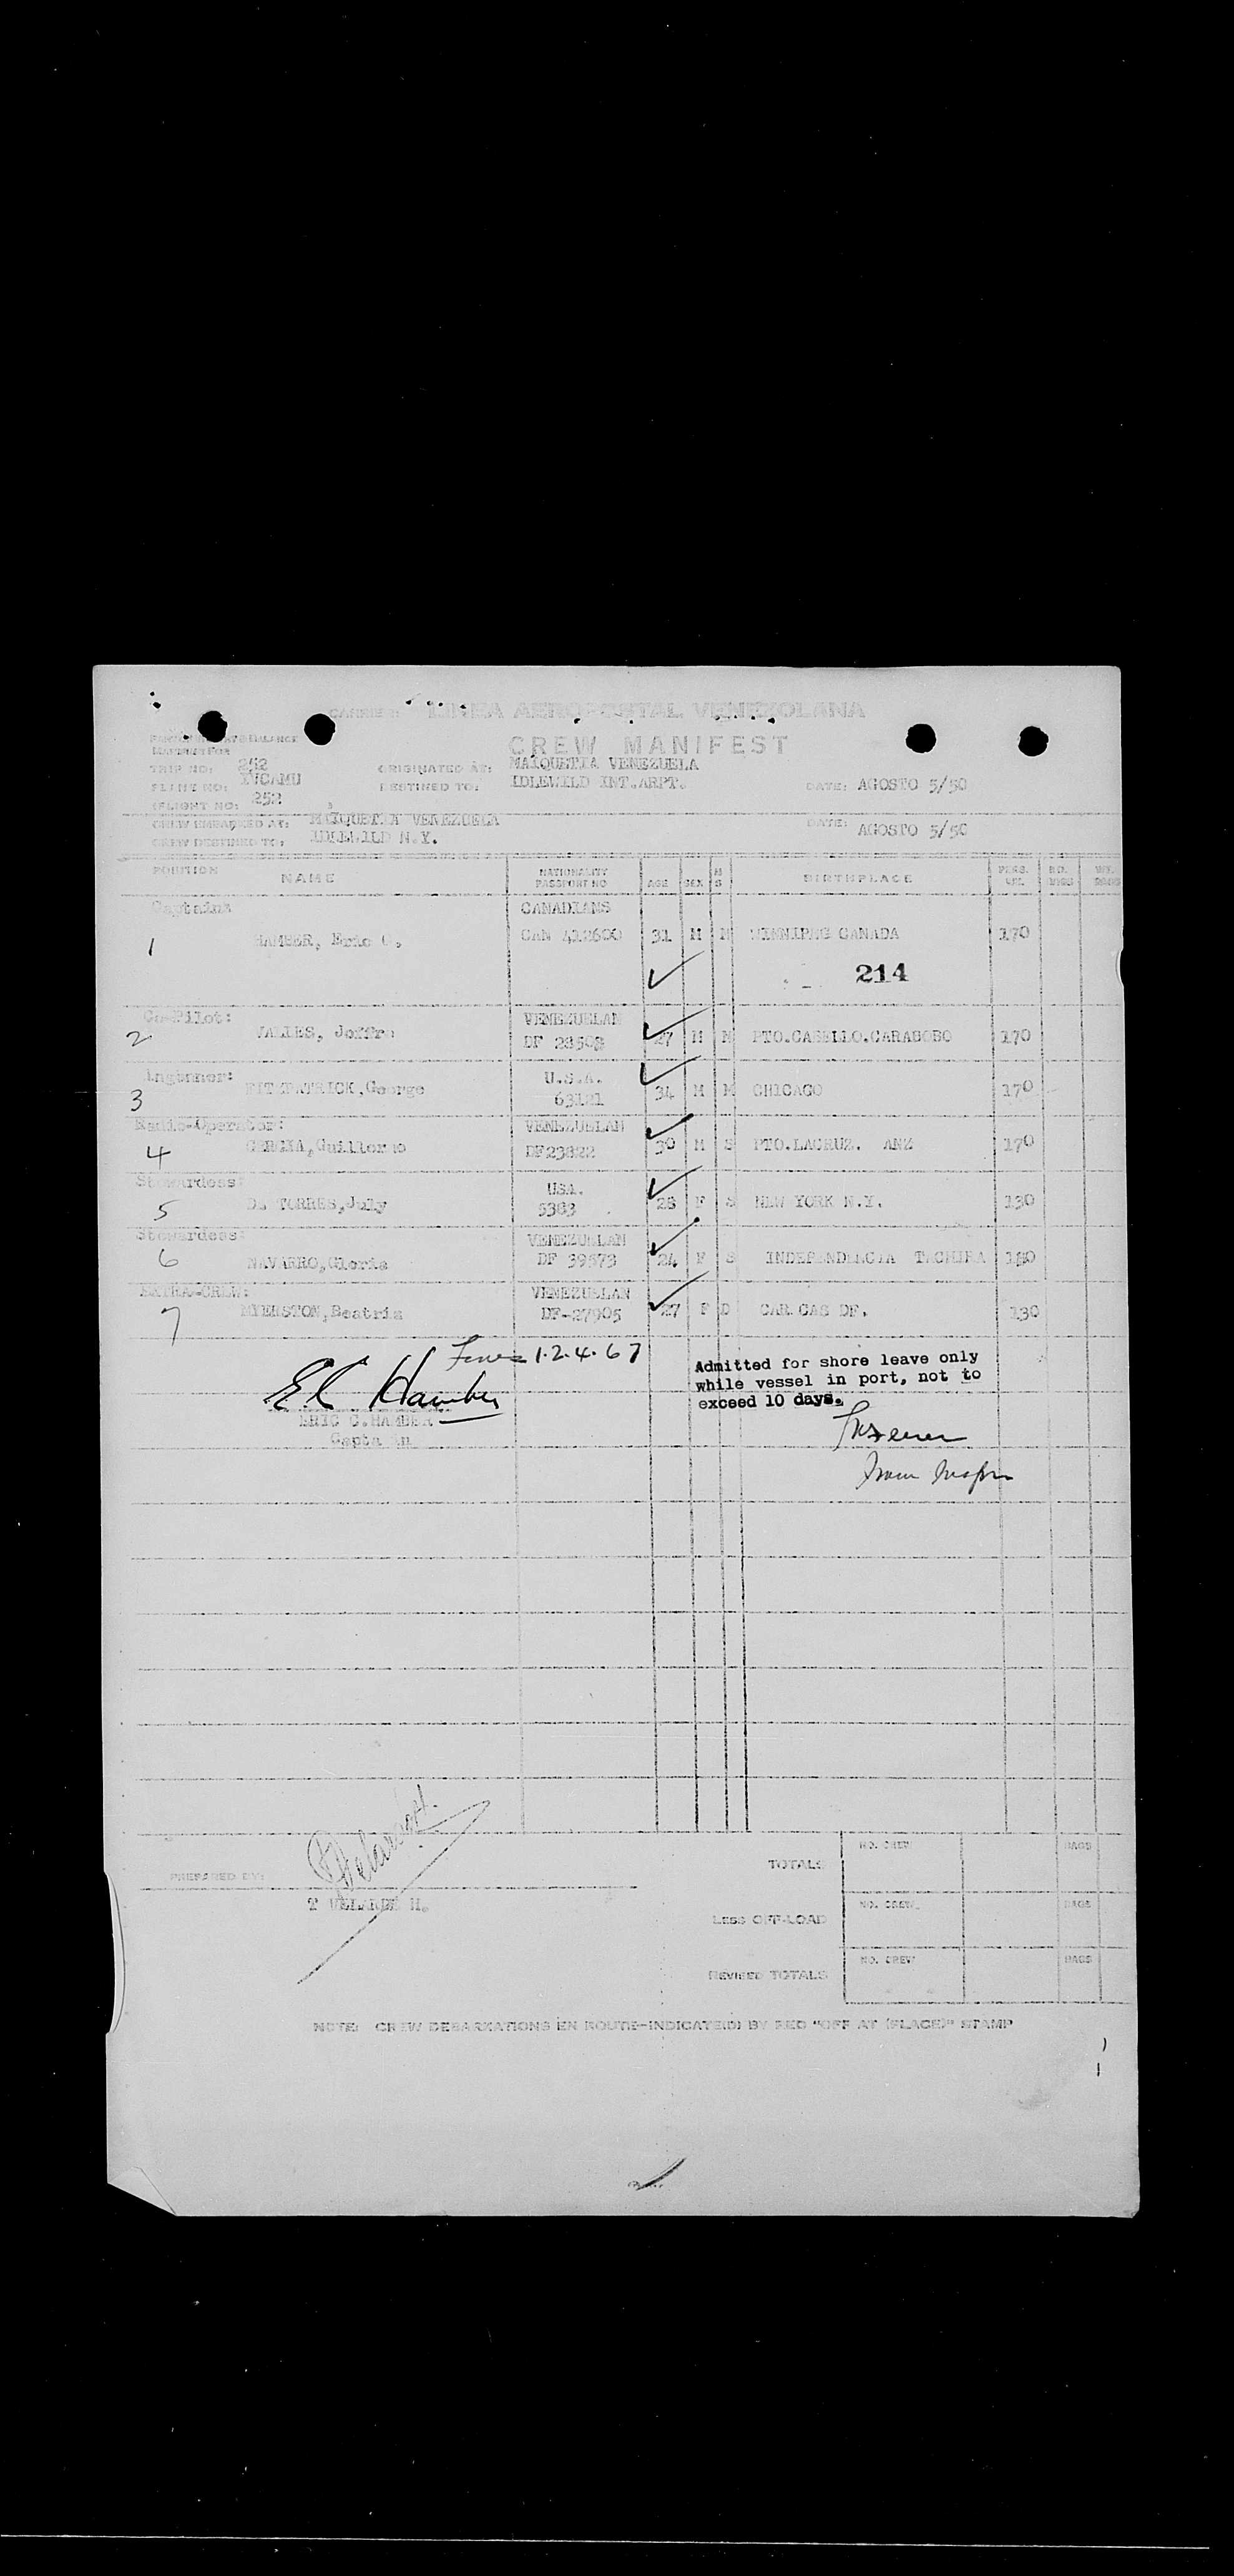 CARRIER: LINEA AEROPOSTAL VENEZOLANA
CREW MANIFEST
MANIFEST FOR
TRIP NO: 252 ORIGINATED AT: MAIQUETIA VENEZUELA
PLANT NO: YVCAMU DESTINED TO: IDLEWILD INT.ARPT. DATE: AGOSTO 5/50
(FLIGHT NO: 252
CREW EMBARKED AT: MAIQUETIA VENEZUELA DATE: AGOSTO 5/50
CREW DESTINED TO: IDLEWILD N.Y.
POSITION NAME NATIONALITY PASSPORT NO AGE SEX M S BIRTHPLACE PERS. WT. NO. BAGS WT. BAGS
Captain: CANADIANS
1 HAMBER, Eric C. CAN 412600 31 M M WINNIPEG CANADA 170
214
Co-Pilot: VENEZUELAN
2 VALLES, Joffre DF 28508 27 M M PTO.CABELLO.CARABOBO 170
Enginner: U.S.A.
3 FITZPATRICK,George 63121 34 M M CHICAGO 170
Radio-Operator: VENEZUELAN
4 GARCIA,Guillermo DF23822 30 M S PTO.LACRUZ. ANZ 170
Stewardess: USA.
5 De TORRES,July 5383 28 F S NEW YORK N.Y. 130
Stewardess: VENEZUELAN
6 NAVARRO,Gloria DF 39573 24 F S INDEPENDENCIA TACHIRA 130
EXTRA-CREW: VENEZUELAN
7 MYERSTON,Beatriz DF-27905 27 F D CARACAS DF. 130
1-2-4-67
E C Hamber
ERIC C.HAMBER
Captain
Admitted for shore leave only
while vessel in port, not to
exceed 10 days.
PREPARED BY:
T VELARDE H.
TOTALS NO. CREW BAGS
LESS OFF-LOAD NO. CREW BAGS
REVISED TOTALS NO. CREW BAGS
NOTE: CREW DEBARKATIONS EN ROUTE-INDICATE(D) BY RED "OFF AT (PLACE)" STAMP